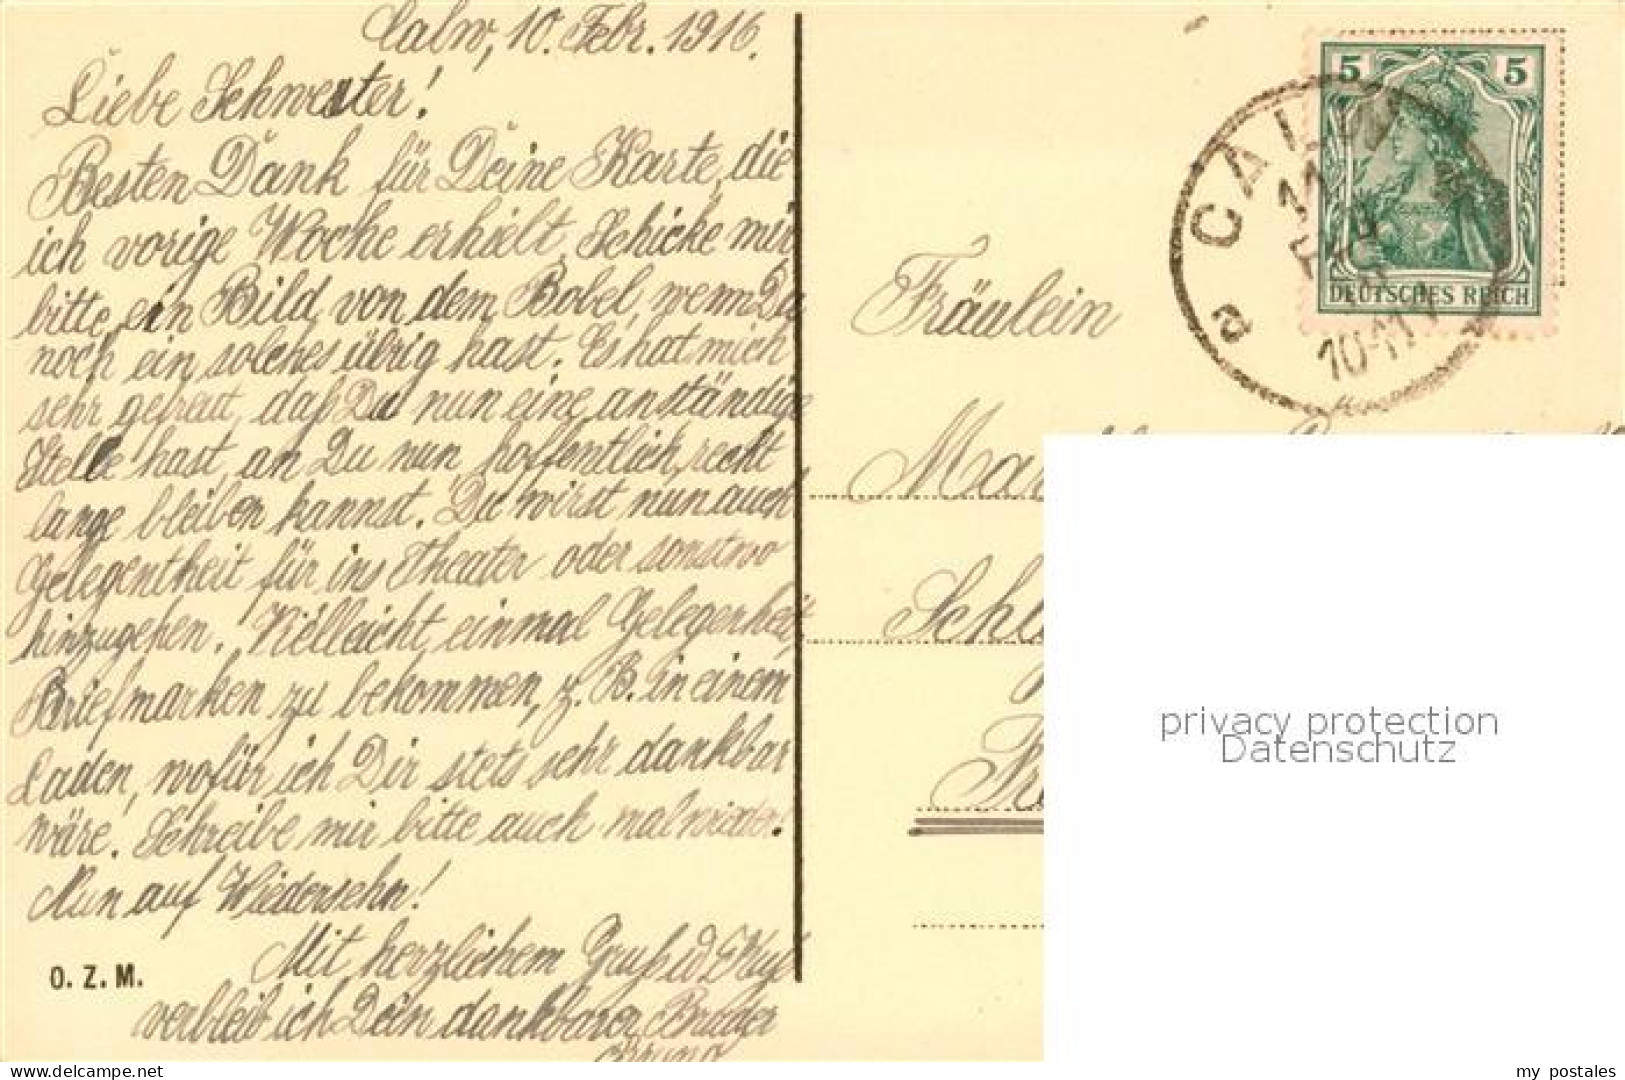 Calw, 10. Febr. 1916.
Liebe Schwester!
Besten Dank für Deine Karte, die
ich vorige Woche erhielt. Schicke mir
bitte ein Bild von dem Bobel, wenn Du
noch ein solches übrig hast. Es hat mich
sehr gefreut, daß Du nun eine anständige
Stelle hast, an Du nun hoffentlich recht
lange bleiben kannst. Du wirst nun auch
Gelegentheit für ins Theater oder sonstwo
hinzugehen. Vielleicht einmal Gelegenheit
Briefmarken zu bekommen, z. B. in einem
Laden, wofür ich Dir stets sehr dankbar
wäre. Schreibe mir bitte auch mal wieder!
Nun auf Wiedersehn!
Mit herzlichem Gruß
verbleib ich Dein dankbarer Bruder
Bruno
O. Z. M.
5 5
DEUTSCHES REICH
CALW
11
10-11 V
a
Fräulein
Mar
Schl
Fr
privacy protection
Datenschutz
delcampe.net
my_postales